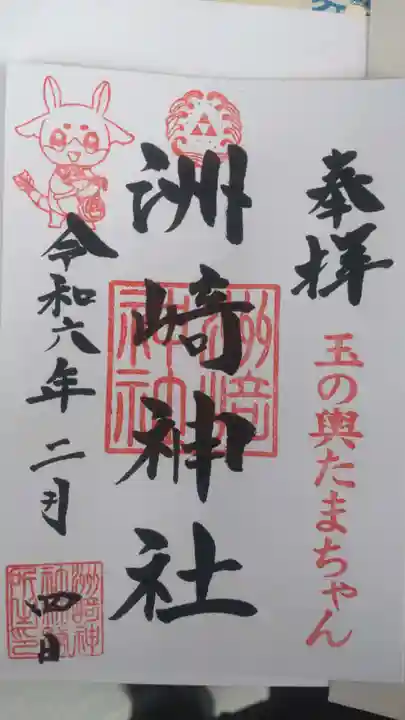 奉拝
玉の輿たまちゃん
洲崎神社
洲崎神社
令和六年二月
四日